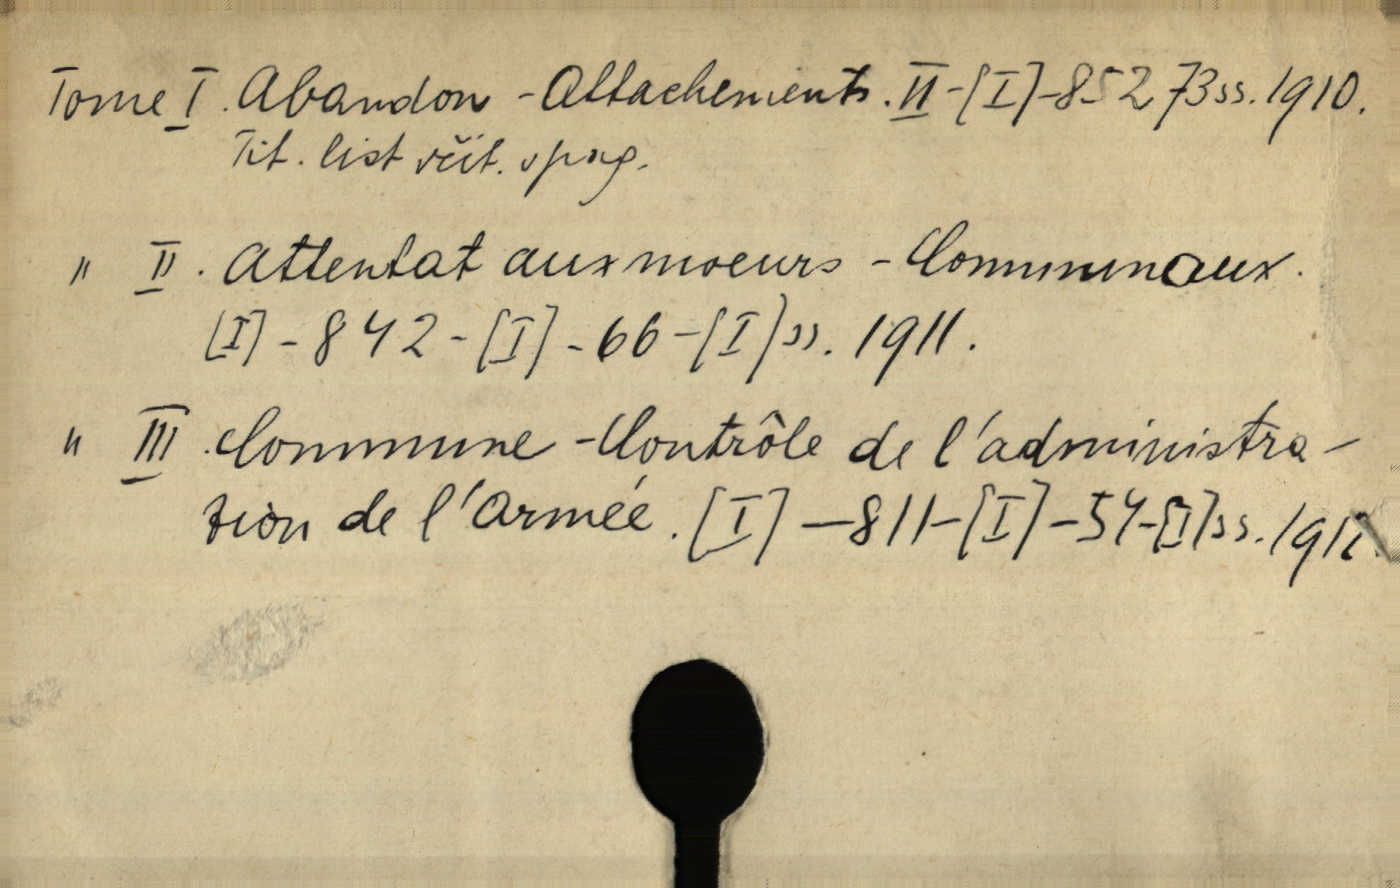 Tome I. Abandon - Attachements. II-[I]-852 73ss. 1910.
Tit. list včít. v pag.
" II. Attentat aux moeurs - Communaux.
[I] - 842 - [I] - 66 - [I] ss. 1911.
" III. Commune - Contrôle de l'administra-
tion de l'Armée. [I] - 811 - [I] - 54 - [I] ss.